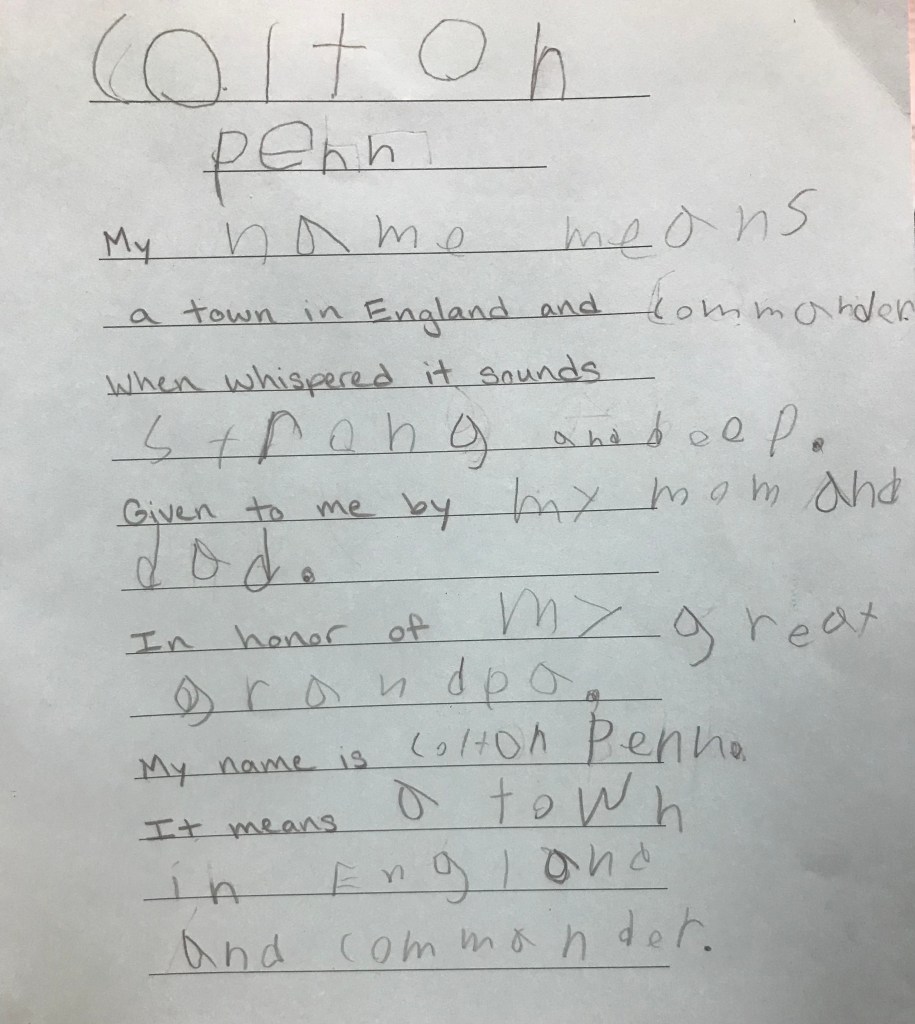 Colton
penn
My name means
a town in England and Commander.
When whispered it sounds
strong and beep.
Given to me by my mom and
dad.
In honor of my great
grandpa.
My name is Colton Penn.
It means a town
in England
and commander.